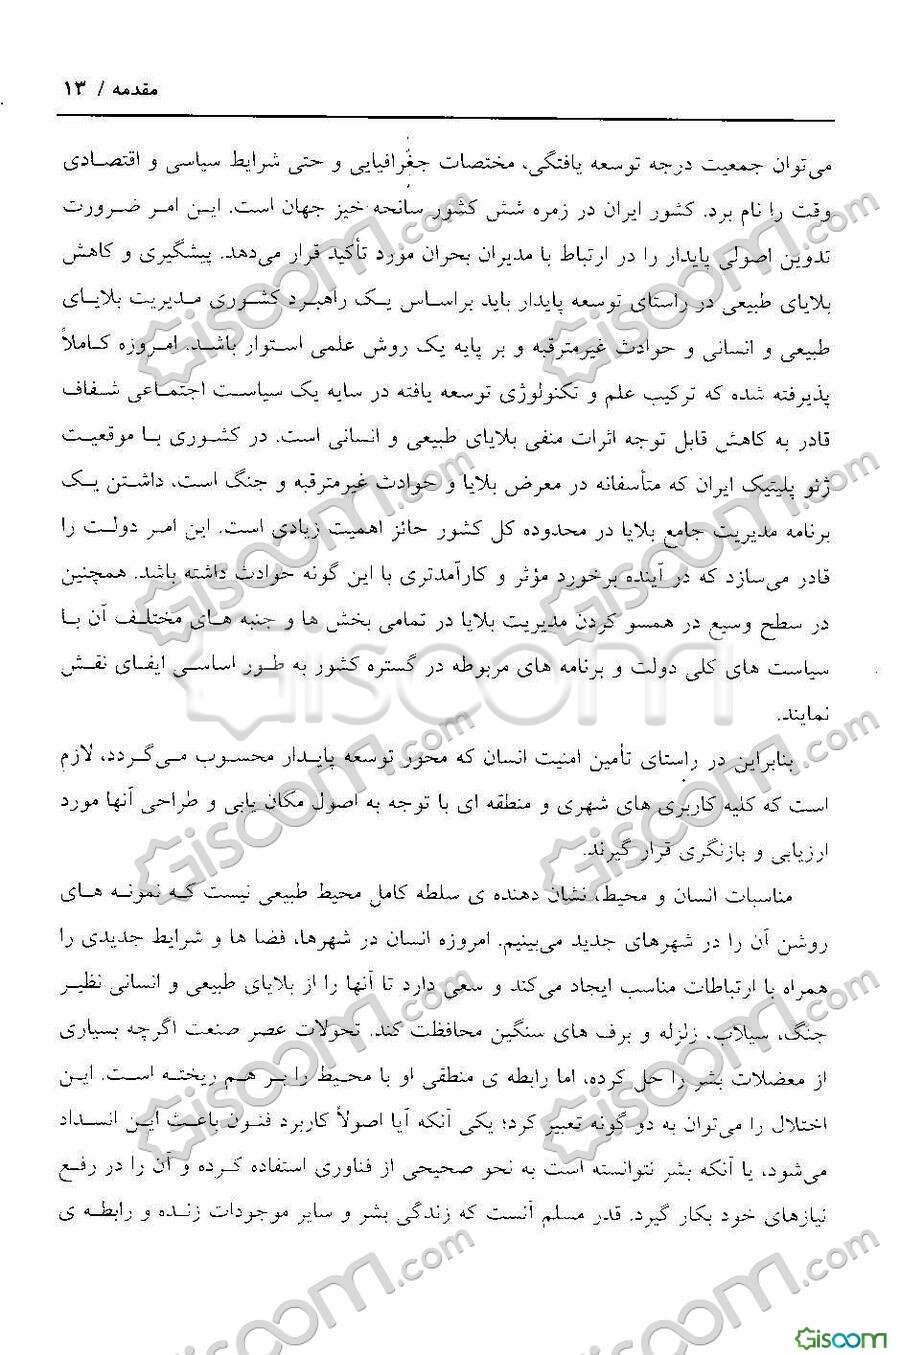 مقدمه / ۱۳
می‌توان جمعیت درجه توسعه یافتگی، مختصات جغرافیایی و حتی شرایط سیاسی و اقتصادی
وقت را نام برد. کشور ایران در زمره شش کشور سانحه خیز جهان است. این امر ضرورت
تدوین اصولی پایدار را در ارتباط با مدیران بحران مورد تأکید قرار می‌دهد. پیشگیری و کاهش
بلایای طبیعی در راستای توسعه پایدار باید براساس یک راهبرد کشوری مدیریت بلایای
طبیعی و انسانی و حوادث غیرمترقبه و بر پایه یک روش علمی استوار باشد. امروزه کاملاً
پذیرفته شده که ترکیب علم و تکنولوژی توسعه یافته در سایه یک سیاست اجتماعی شفاف
قادر به کاهش قابل توجه اثرات منفی بلایای طبیعی و انسانی است. در کشوری با موقعیت
ژئو پلیتیک ایران که متأسفانه در معرض بلایا و حوادث غیرمترقبه و جنگ است، داشتن یک
برنامه مدیریت جامع بلایا در محدوده کل کشور حائز اهمیت زیادی است. این امر دولت را
قادر می‌سازد که در آینده برخورد مؤثر و کارآمدتری با این گونه حوادث داشته باشد. همچنین
در سطح وسیع در همسو کردن مدیریت بلایا در تمامی بخش ها و جنبه های مختلف آن با
سیاست های کلی دولت و برنامه های مربوطه در گستره کشور به طور اساسی ایفای نقش
نمایند.
بنابراین در راستای تأمین امنیت انسان که محور توسعه پایدار محسوب می‌گردد، لازم
است که کلیه کاربری های شهری و منطقه ای با توجه به اصول مکان یابی و طراحی آنها مورد
ارزیابی و بازنگری قرار گیرند.
مناسبات انسان و محیط، نشان دهنده ی سلطه کامل محیط طبیعی نیست که نمونه های
روشن آن را در شهرهای جدید می‌بینیم. امروزه انسان در شهرها، فضا ها و شرایط جدیدی را
همراه با ارتباطات مناسب ایجاد می‌کند و سعی دارد تا آنها را از بلایای طبیعی و انسانی نظیر
جنگ، سیلاب، زلزله و برف های سنگین محافظت کند. تحولات عصر صنعت اگرچه بسیاری
از معضلات بشر را حل کرده، اما رابطه ی منطقی او با محیط را بر هم ریخته است. این
اختلال را می‌توان به دو گونه تعبیر کرد؛ یکی آنکه آیا اصولاً کاربرد فنون باعث این انسداد
می‌شود، یا آنکه بشر نتوانسته است به نحو صحیحی از فناوری استفاده کرده و آن را در رفع
نیازهای خود بکار گیرد. قدر مسلم آنست که زندگی بشر و سایر موجودات زنده و رابطه ی
Giscoom.com
Giscoom